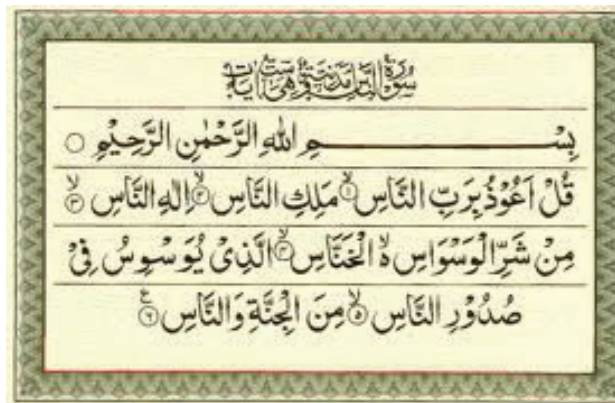 سُوْرَةُ النَّاسِ مَدَنِيَّةٌ وَّهِيَ سِتُّ اٰيَاتٍ
بِسْمِ اللهِ الرَّحْمٰنِ الرَّحِيْمِ ○
قُلْ اَعُوْذُ بِرَبِّ النَّاسِ ۙ﴿۱﴾ مَلِكِ النَّاسِ ۙ﴿۲﴾ اِلٰهِ النَّاسِ ۙ﴿۳﴾
مِنْ شَرِّ الْوَسْوَاسِ ۙ۬ الْخَنَّاسِ ۙ﴿۴﴾ الَّذِیْ یُوَسْوِسُ فِیْ
صُدُوْرِ النَّاسِ ۙ﴿۵﴾ مِنَ الْجِنَّةِ وَالنَّاسِ ﴿۶﴾ ع